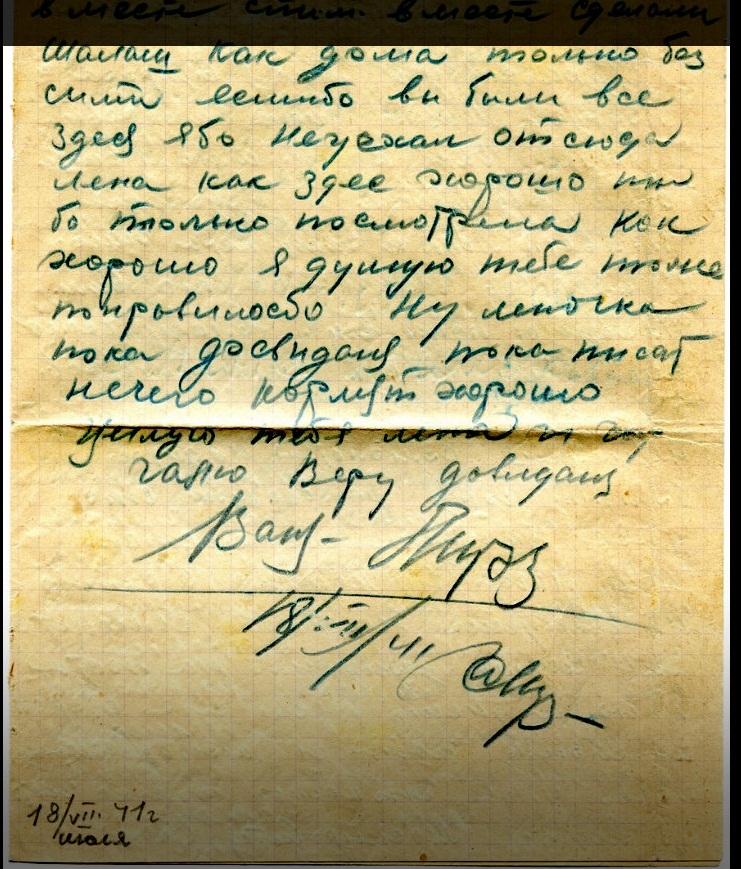 вместе спим вместе сделали
шалаш как дома только без
еслибо вы были все
здеся ябо неуехал отсюда
лена как здес хорошо ты
бо только посмотрела как
хорошо я думую тебе тоже
понравилосбо Ну леночка
пока досвиданя пока писат
нечего кормят хорошо
целую тебя лена и
галю Веру довиданя
Ваня
18/VII 41
18/VII. 41г
июля